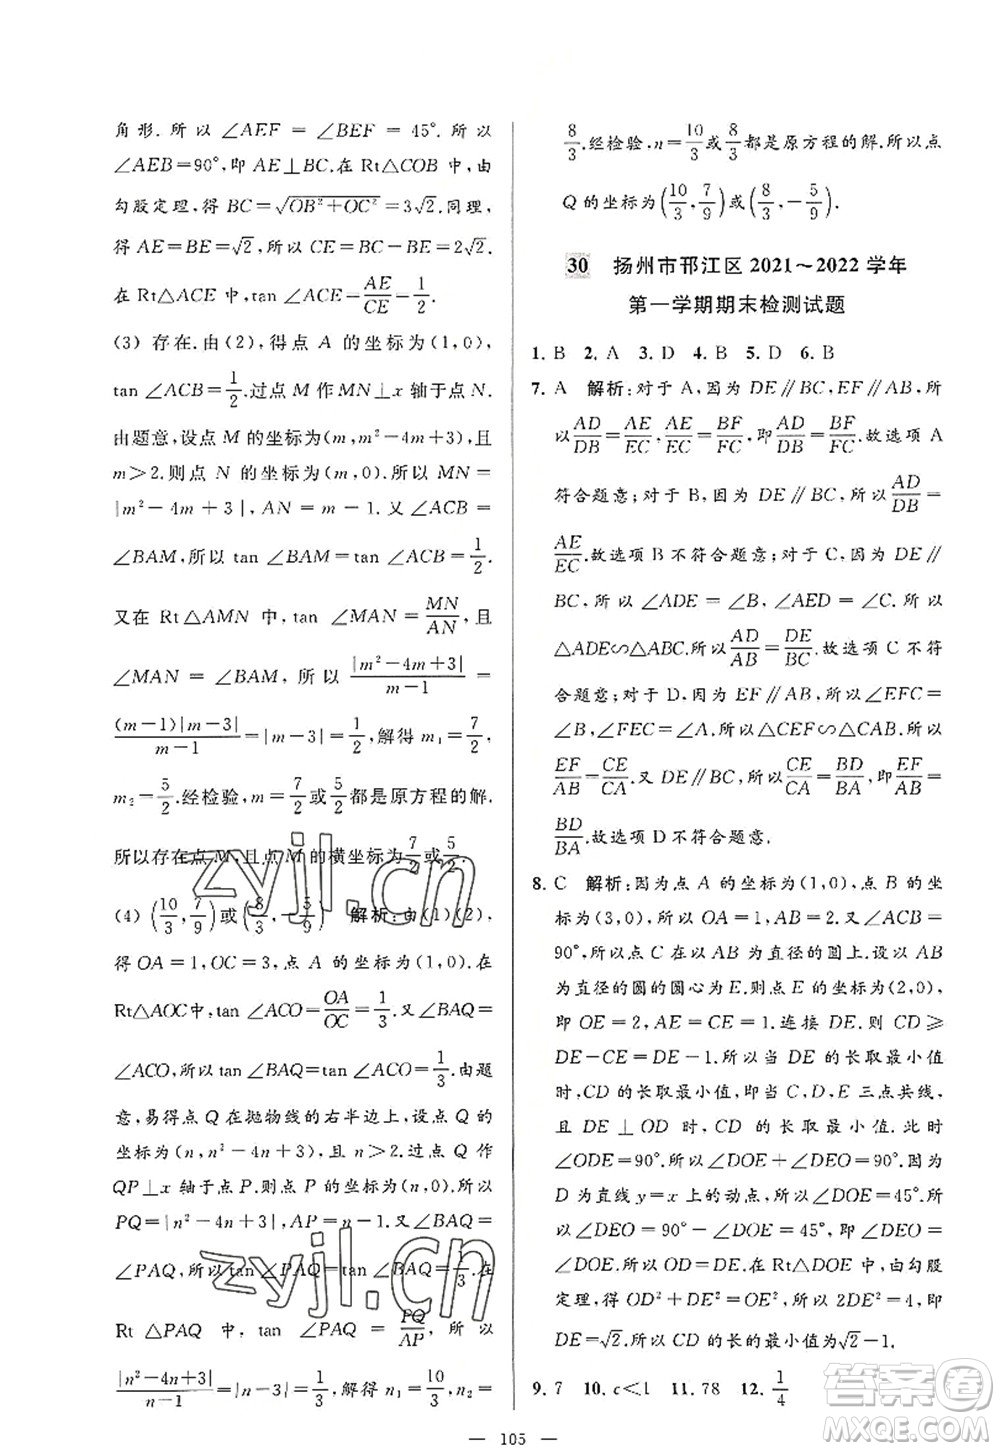 角形.所以∠AEF=∠BEF=45°.所以
∠AEB=90°,即AE⊥BC.在Rt△COB中,由
勾股定理,得BC=√(OB²+OC²)=3√2.同理,
得AE=BE=√2,所以CE=BC-BE=2√2.
在Rt△ACE中,tan∠ACE=AE/CE=1/2.
(3)存在.由(2),得点A的坐标为(1,0),
tan∠ACB=1/2.过点M作MN⊥x轴于点N.
由题意,设点M的坐标为(m,m²-4m+3),且
m>2.则点N的坐标为(m,0).所以MN=
|m²-4m+3|,AN=m-1.又∠ACB=
∠BAM,所以tan∠BAM=tan∠ACB=1/2.
又在Rt△AMN中,tan∠MAN=MN/AN,
∠MAN=∠BAM,所以|m²-4m+3|/(m-1)=
(m-1)|m-3|/(m-1)=|m-3|=1/2,解得m₁=7/2,
m₂=5/2.经检验,m=7/2或5/2都是原方程的解.
所以存在点M,且点M的横坐标为7/2或5/2.
(4)(10/3,7/9)或(8/3,-5/9) 解析:由(1)(2),
得OA=1,OC=3,点A的坐标为(1,0).在
Rt△AOC中,tan∠ACO=OA/OC=1/3.又∠BAQ=
∠ACO,所以tan∠BAQ=tan∠ACO=1/3.由题
意,易得点Q在抛物线的右半边上,设点Q的
坐标为(n,n²-4n+3),且n>2.过点Q作
QP⊥x轴于点P.则点P的坐标为(n,0).所以
PQ=|n²-4n+3|,AP=n-1.又∠BAQ=
∠PAQ,所以tan∠PAQ=tan∠BAQ=1/3.在
Rt△PAQ中,tan∠PAQ=PQ/AP,所以
|n²-4n+3|/(n-1)=|n-3|=1/3,解得n₁=10/3,n₂=
8/3.经检验,n=10/3或8/3都是原方程的解.所以点
Q的坐标为(10/3,7/9)或(8/3,-5/9).
30 扬州市邗江区2021~2022学年
第一学期期末检测试题
1.B 2.A 3.D 4.B 5.D 6.B
7.A 解析:对于A,因为DE∥BC,EF∥AB,所
以AD/DB=AE/EC,AE/EC=BF/FC,即AD/DB=BF/FC.故选项A
符合题意;对于B,因为DE∥BC,所以AD/DB=
AE/EC.故选项B不符合题意;对于C,因为DE∥
BC,所以∠ADE=∠B,∠AED=∠C.所以
△ADE∽△ABC.所以AD/AB=DE/BC.故选项C不符
合题意;对于D,因为EF∥AB,所以∠EFC=
∠B,∠FEC=∠A.所以△CEF∽△CAB.所以
EF/AB=CE/CA.又DE∥BC,所以CE/CA=BD/BA,即EF/AB=
BD/BA.故选项D不符合题意.
8.C 解析:因为点A的坐标为(1,0),点B的坐
标为(3,0),所以OA=1,AB=2.又∠ACB=
90°,所以点C在以AB为直径的圆上.设以AB
为直径的圆的圆心为E.则点E的坐标为(2,0),
即OE=2,AE=CE=1.连接DE.则CD≥
DE-CE=DE-1.所以当DE的长取最小值
时,CD的长取最小值.所以当C,D,E三点共线,
且DE⊥OD时,CD的长取最小值.所以
∠ODE=90°.所以∠DEO+∠DOE=90°.因为D
为直线y=x上的动点,所以∠DOE=45°.所
以∠DEO=90°-∠DOE=45°,即∠DEO=
∠DOE.所以OD=DE.在Rt△DOE中,由勾股
定理,得OD²+DE²=OE²,所以2DE²=4,即
DE=√2.所以CD的长的最小值为√2-1.
9.7 10.c<1 11.78 12.1/4
zyjl.cn
zyjl.cn
答案圈
MXQE.COM
— 105 —